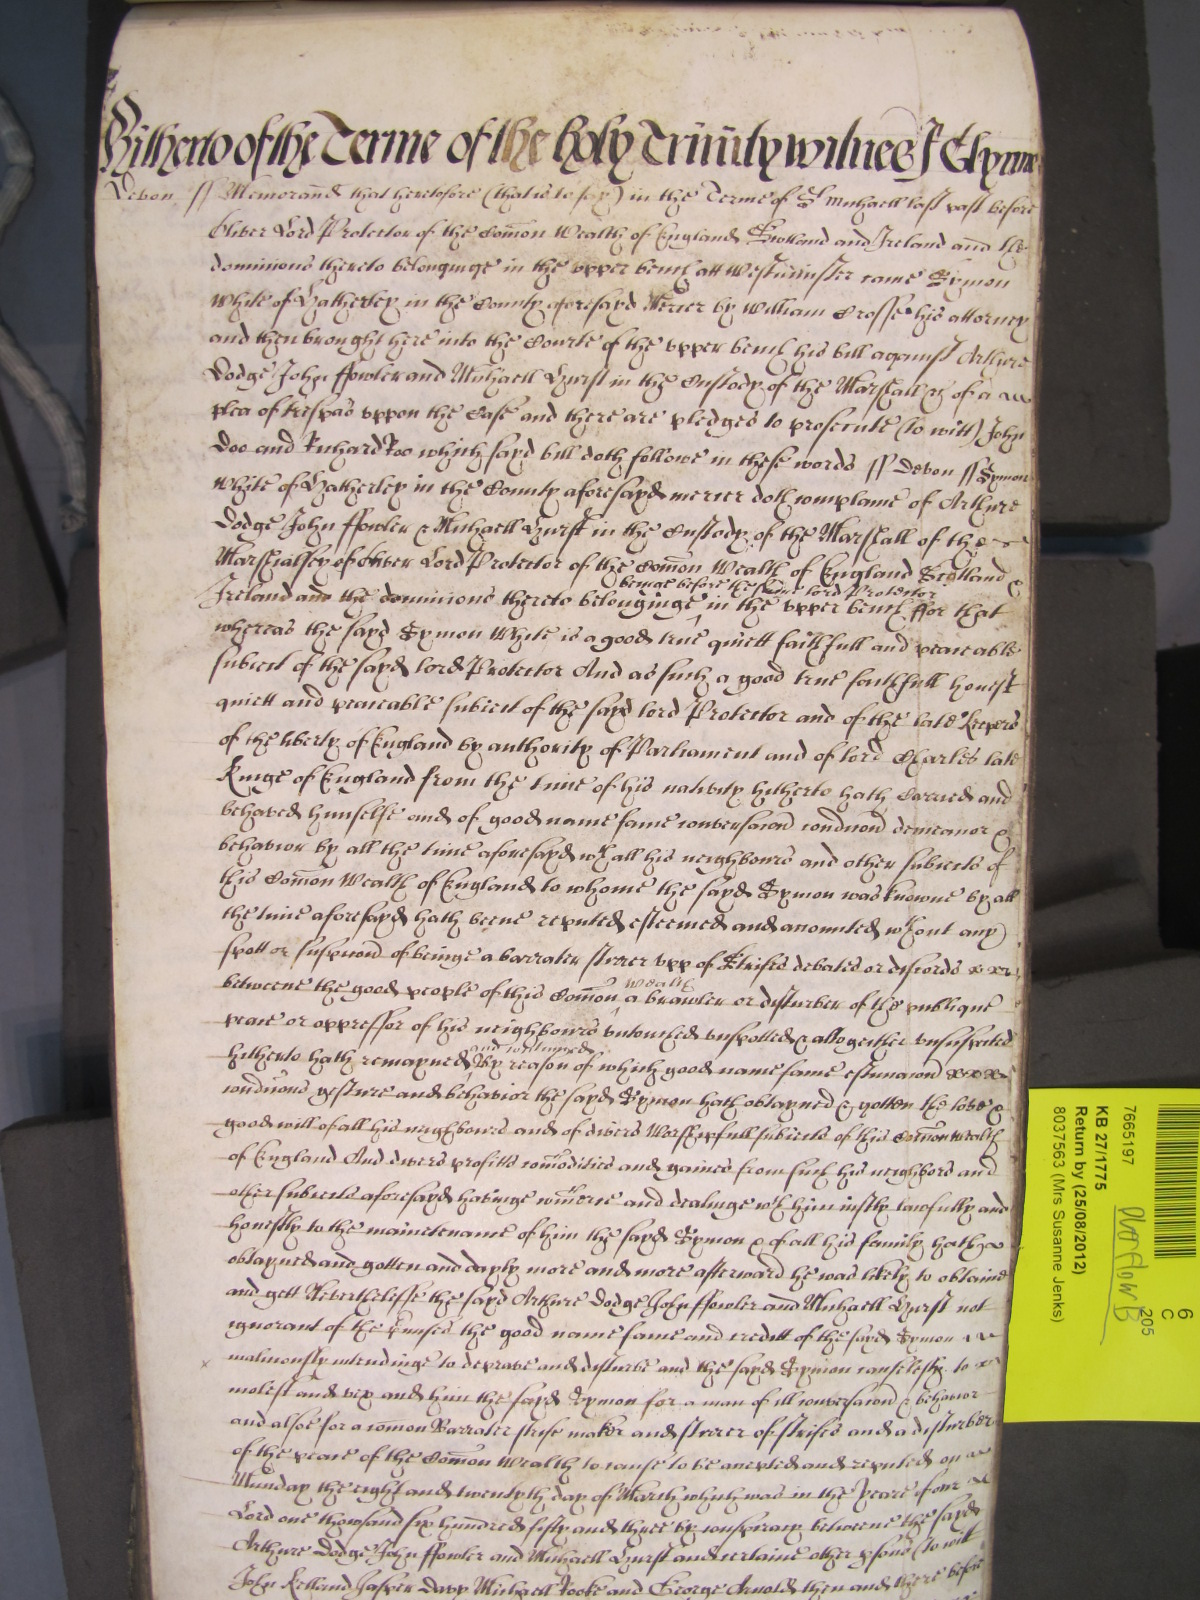 Hitherto of the Terme of the holy Trinity witnes J Glynne
Devon ss Memorand that heretofore (that is to say) in the Terme of St Michaell last past before
Oliver Lord Protector of the Comon Wealth of England Scotland and Ireland and the
dominions thereto belonginge in the upper bench att Westminster came Symon
White of Hatherley in the County aforesayd Mercer by William Crosse his attorney
and then brought here into the Courte of the upper bench his bill against Arthure
Dodge John ffowler and Michaell Hurst in the Custody of the Marshall &c of a
plea of trespas uppon the Case and there are pledges to prosecute (to witt) John
Doo and Richard Roo which sayd bill doth followe in these words ss Devon ss Symon
White of Hatherley in the County aforesayd mercer doth complaine of Arthure
Dodge John ffowler & Michaell Hurst in the Custody of the Marshall of the
Marshalsey of Oliver Lord Protector of the Comon Wealth of England Scotland &
beinge before the same lord Protector
Ireland and the dominions thereto belonginge in the upper bench ffor that
whereas the sayd Symon White is a good true quiett faithfull and peaceable
subiect of the sayd lord Protector And as such a good true faithfull honest
quiett and peaceable subiect of the sayd lord Protector and of the late keepers
of the liberty of England by authority of Parliament and of lord Charles late
Kinge of England from the time of his nativity hitherto hath Carried and
behaved himselfe and of good name fame conversacon condicon demeanor &
behavior by all the time aforesayd wth all his neighbours and other subiects of
this Comon Wealth of England to whome the sayd Symon was knowne by all
the time aforesayd hath beene reputed esteemed and accounted wthout any
spott or suspicon of beinge a barrater stirrer upp of Strifes debates or discords
wealth
betweene the good people of this Comon a brawler or disturber of the publique
peace or oppressor of his neighbours untouched unspotted & altogeither unsuspected
and continued
hitherto hath remayned By reason of which good name fame estimacon
condicons gesture and behavior the sayd Symon hath obtayned & gotten the love &
good will of all his neighbours and of divers Worshipfull subiects of this Comon wealth
of England And divers profitts comodities and gaines from such his neighbors and
other subiects aforesayd havinge comerce and dealinge wth him iustly lawfully and
honestly to the maintenance of him the sayd Symon & of all his family hath
obtayned and gotten and dayly more and more afterward he was likely to obtaine
and gett Neverthelesse the sayd Arthure Dodge John ffowler and Michaell Hurst not
ignorant of the premises the good name fame and creditt of the sayd Symon
maliciously intendinge to deprave and disturbe and the sayd Symon causelesly to
molest and vex and him the sayd Symon for a man of ill conversacon & behavior
and alsoe for a comon Barrater strife maker and stirrer of strifes and a disturber
of the peace of the Comon Wealth to cause to be accepted and reputed on
Munday the eight and twentyth day of March which was in the yeare of our
Lord one thowsand six hundred fifty and three by conspiracy betweene the sayd
Arthure Dodge John ffowler and Michaell Hurst and certaine other psons (to witt
John Kelland Jasper Davy Michaell Rooke and George Arnold then and there before
6
C
205
7665197
KB 27/1775
Return by (25/08/2012)
8037563 (Mrs Susanne Jenks)